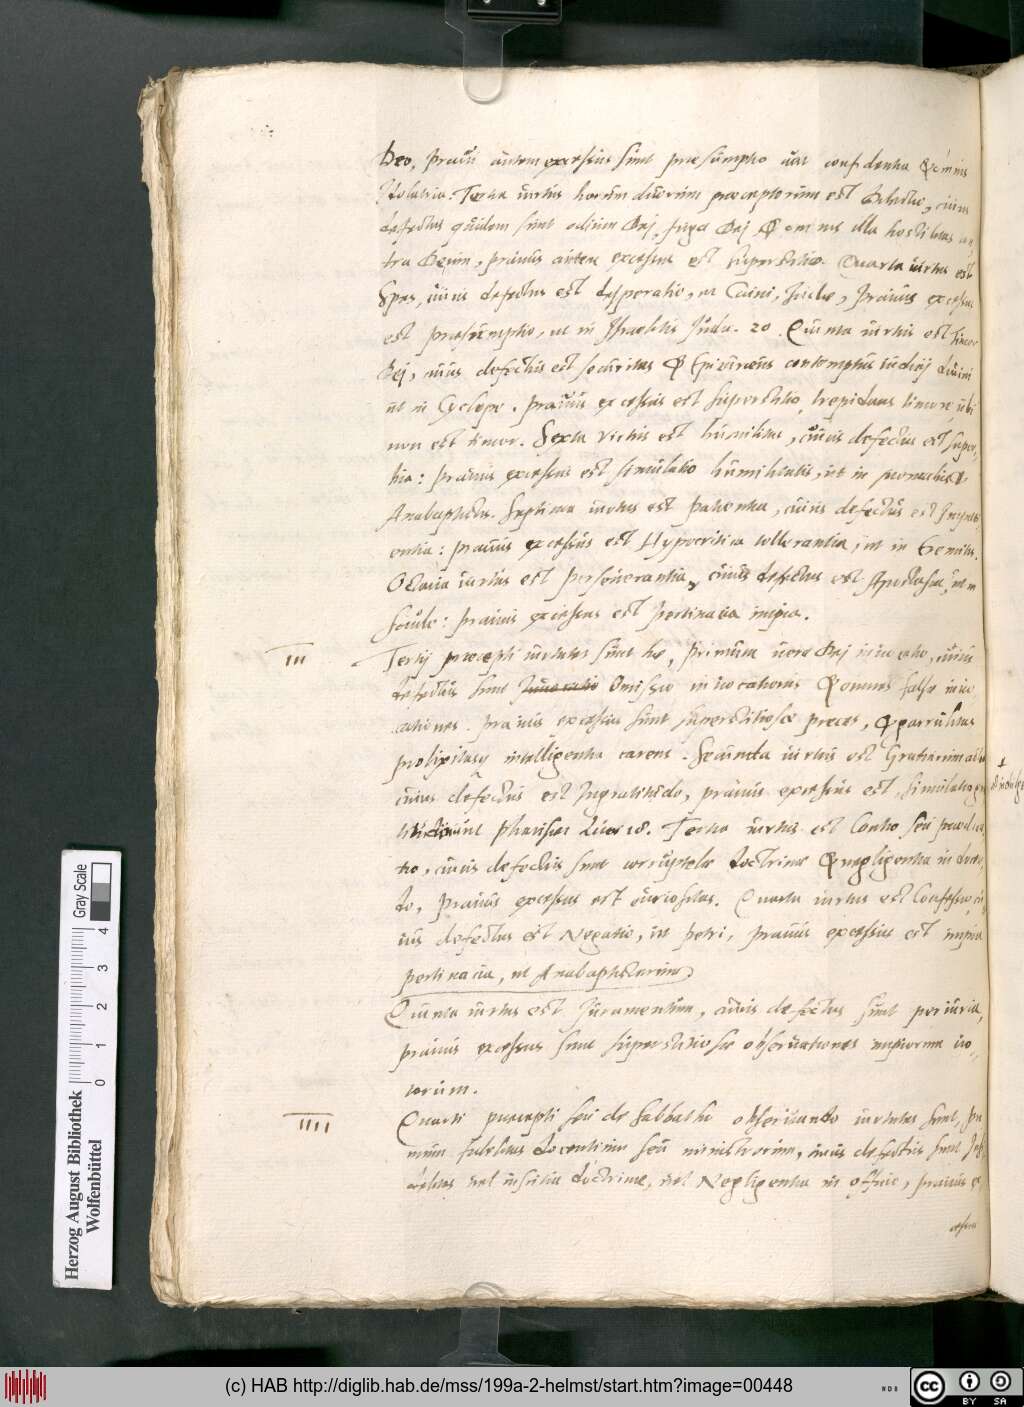 Deo, prauus autem excessus sunt praesumptio uel confidentia & omnis
Idolatria. Tertia uirtus horum duorum praeceptorum est Dilectio, cuius
defectus quidem sunt odium Dej, fuga Dej & omnis illa hostilitas con-
tra Deum, prauus autem excessus est superstitio. Quarta uirtus est
Spes, cuius defectus est desperatio, ut Caini, Judae, prauus excessus
est praesumptio, ut in Israelitis Judic. 20. Quinta uirtus est timor
Dej, cuius defectus est securitas & Epicureus contemptus iudicij diuini
ut in Cyclope. Prauus excessus est superstitio, trepidans timore, ubi
non est timor. Sexta virtus est humilitas, cuius defectus est super-
bia: prauus excessus est simulatio humilitatis, ut in monachis &
Anabaptistis. Septima uirtus est patientia, cuius defectus est Impati
entia: prauus excessus est Hypocritica tollerantia, ut in Gentilib.
Octaua uirtus est perseuerantia, cuius defectus est Apostasia, ut in
Saule: prauus excessus est pertinacia impia.
III Tertij praecepti uirtutes sunt hae, Primum uera Dej inuocatio, cuius
defectus sunt Inuocatio Omissio inuocationis & omnes falsae inuo
cationes. prauus excessus sunt superstitiosae preces, & garrulitas
prolixitasq intelligentia carens. Secunda uirtus est Gratiarum actio
cuius defectus est Ingratitudo, prauus excessus est simulatio gra
titudinis ut pharisaei Lucae 18. Tertia uirtus est Contio seu praedica
tio, cuius defectus sunt corruptelae doctrinae & negligentia in docen
do, prauus excessus est curiositas. Quarta uirtus est Confessio, cu-
ius defectus est Negatio, ut petri, prauus excessus est impia
pertinacia, ut Anabaptistarum
Quinta uirtus est Juramentum, cuius defectus sunt periuria,
prauus excessus sunt superstitiosae obseruationes impiorum uo-
torum.
IIII Quarti praecepti seu de sabbatho obseruando uirtutes sunt, pri
mum fidelitas docentium seu ministrorum, cuius defectus sunt
uel inscitia doctrinae, uel Negligentia in officio, prauus ex
cessus
Herzog August Bibliothek
Wolfenbüttel
0 1 2 3 4
Gray Scale
(c) HAB http://diglib.hab.de/mss/199a-2-helmst/start.htm?image=00448
cc BY SA